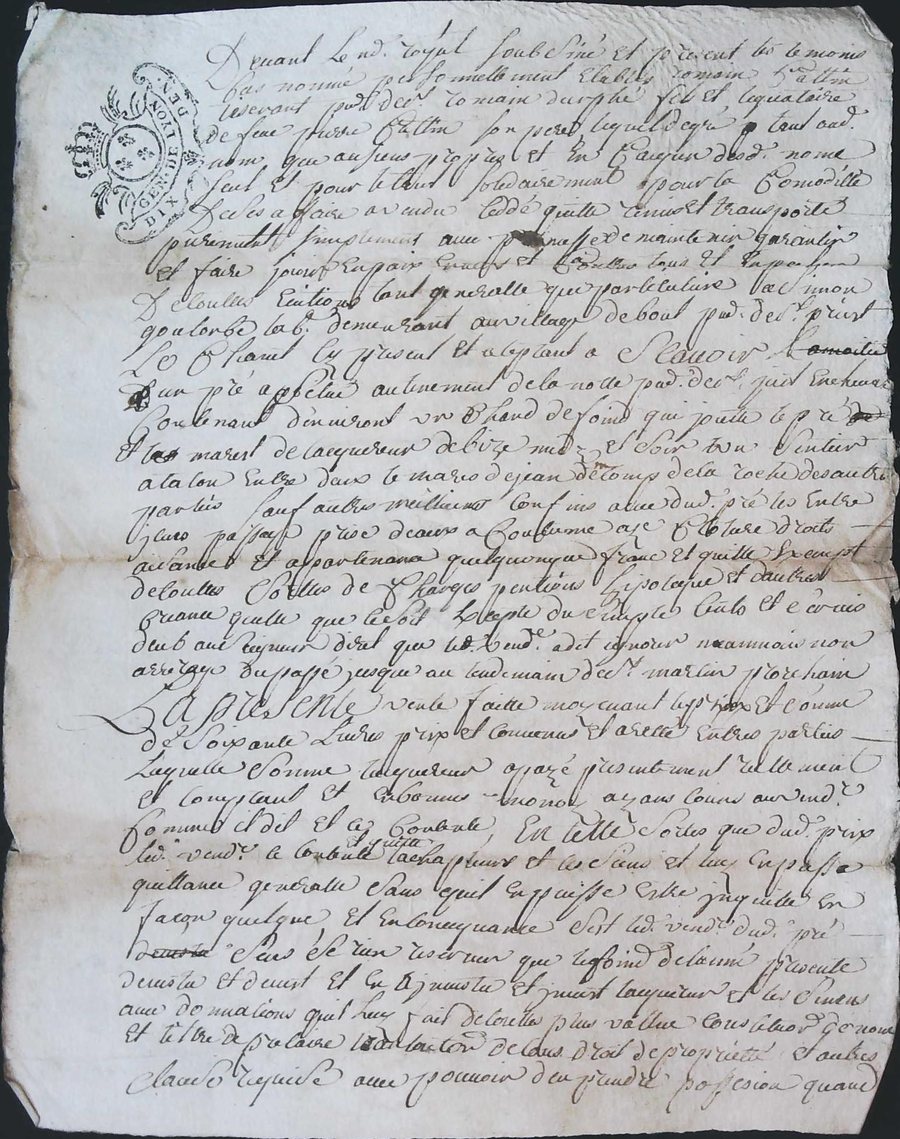 GEN. DE LYON
DIX DEN.
Devant le no.re royal soubsiné et present les temoins
bas nommé personnellement Etably romain
reservant par.s de st romain durphé fils et
de feu pierre son pere lequel degré
nom que au siens propre et En d. nome
seul et pour le tout solidairement pour la Comodité
De ses affaire a vendu ceddé quitte remis et transporté
purement simplement avec promesse de maintenir garantir
et faire jouir En paix Envers et Contres tous et
De touttes Evitions tant generalle que particuliere
lab.r demeurant au village de bout par. de st priest
Le present et aceptant a Scavoir la moitié
D'un pré appellé au tinement de la notte par. de st just En chevale
Contenant d'environt un Chard de foind qui jouitte le pré de
et les marest de lacquereur de bize midy et soir un sentier
a talon Entre deux le mares de jean de la roche des autres
parties sauf autres meillieurs Confins avec dud. pré les Entré
jssues passage prise deaux a Coutume aze Cloture droits
aisances et apartenance quelquonque franc et quitte Exempt
de touttes Sorttes de Charges pentions hipoteque et d'autres
quelle que ce soit Excepté du simple Cents et
deub au seigneur diret que led. vend.r a dit ignorer neanmoin non
arrerage du passé jusque au lendemain de st martin prochain
La presente vente faitte moyenant le prix et somme
de Soixante Livres prix et convenus et aretté Entres parties
Laquelle Somme lacquereur a payé presentement reellement
et Comptant et En bonnes monoy ayans cours au vend.r
Comme il dit et se Contente, En telle Sortes que dud. prix
led. vend.r se contente et quitte lachepteur et les Siens et luy En passe
quittance generalle Sans quil En puisse Estre jnquietté En
facon quelque, et En Consequance s'est led. vend.r dud. pré
Sans se rien reserver que le foind de lanné presente
demetu et devest et En a jnvestu et jnvest lacquereur et les Siens
avec donnations quil luy fait de touttes plus vallue Constitution de nom
et tiltre de precaire de tous droit de proprietté et autres
Clause requise avec pouvoir d'en prendre possesion quand